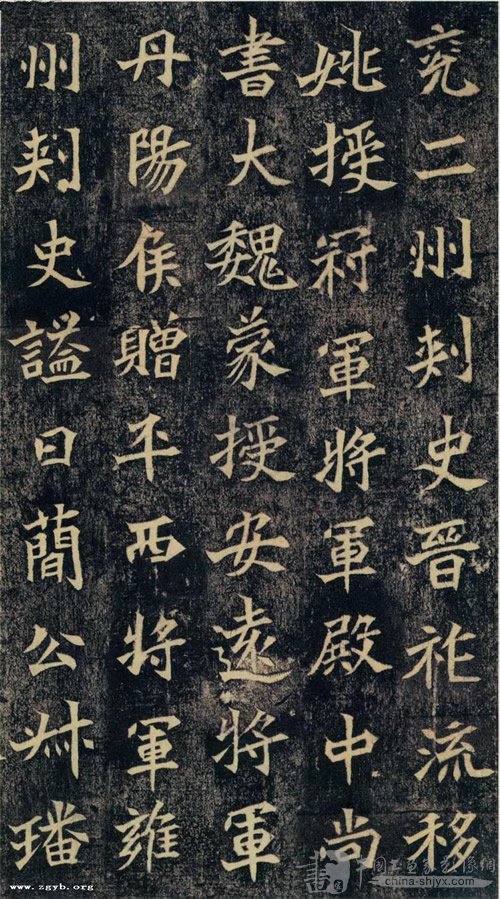 兖二州刾史晉祚流移
姚授冠軍將軍殿中尚
書大魏蒙授安遠將軍
丹陽侯贈平西將軍雍
州刾史謚曰簡公叔璠
www.zgyb.org
china-shjyx.com